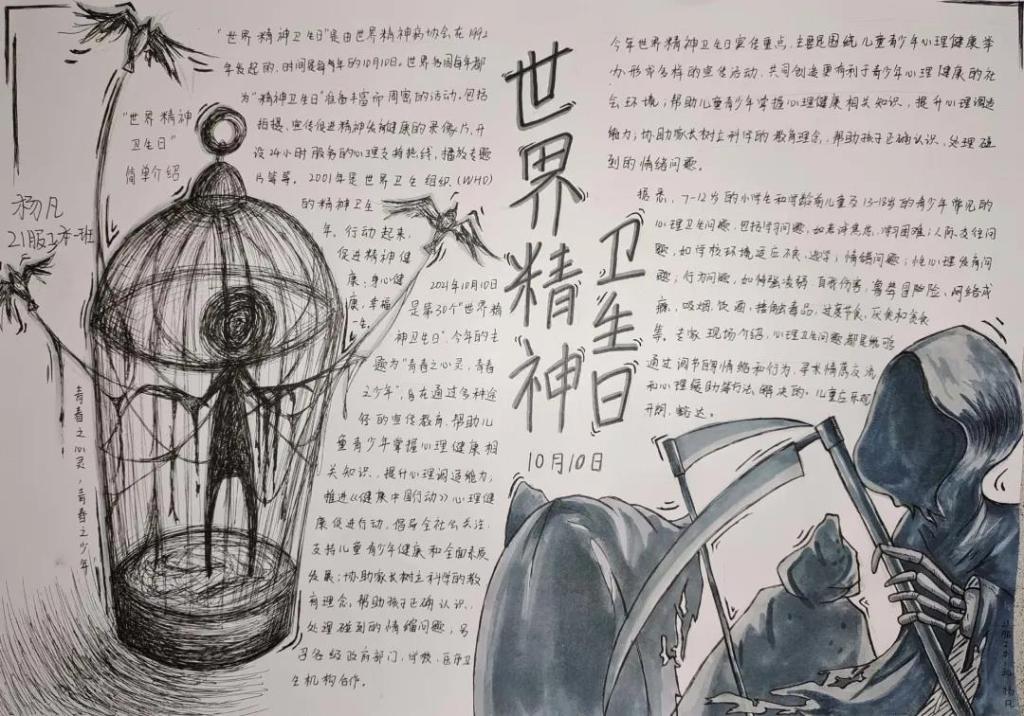 世界精神
卫生日
10月10日
"世界精神
卫生日"
简单介绍
杨凡
21服工本一班
"世界精神卫生日"是由世界精神病协会在1992
年发起的,时间是每年的10月10日。世界各国每年都
为"精神卫生日"准备丰富而周密的活动。包括
拍摄、宣传促进精神健康的录像片,开
设24小时服务的心理支持热线,播放专题
片等等。2001年是世界卫生组织(WHO)
的精神卫生
年。行动起来,
促进精神健
康,身心健
康,幸福
一生。
2021年10月10日
是第30个"世界精
神卫生日",今年的主
题为"青春之心灵,青春
之少年",旨在通过多种途
径的宣传教育,帮助儿
童青少年掌握心理健康相
关知识,提升心理调适能力;
推进《健康中国行动》心理健
康促进行动,倡导全社会关注、
支持儿童青少年健康和全面素质
发展;协助家长树立科学的教
育理念,帮助孩子正确认识、
处理碰到的情绪问题;
各级政府部门,学校、医疗卫
生机构合作。
青春之心灵,青春之少年
今年世界精神卫生日宣传重点,主要是围绕儿童青少年心理健康举
办形式多样的宣传活动,共同创造更有利于青少年心理健康的社
会环境;帮助儿童青少年掌握心理健康相关知识,提升心理调适
能力;协助家长树立科学的教育理念,帮助孩子正确认识、处理碰
到的情绪问题。
据悉,7-12岁的小学生和学龄前儿童及13-18岁的青少年常见的
心理卫生问题,包括学习问题,如考试焦虑、学习困难;人际交往问
题,如学校环境适应不良、逃学;情绪问题;性心理发育问
题;行为问题,如恃强凌弱、自我伤害、鲁莽冒险、网络成
瘾、吸烟、饮酒、接触毒品、过度节食、厌食和贪食
等。专家现场介绍,心理卫生问题都是能够
通过调节情绪和行为、寻求情感交流
和心理援助等方法解决的。儿童应乐观
开朗、豁达。